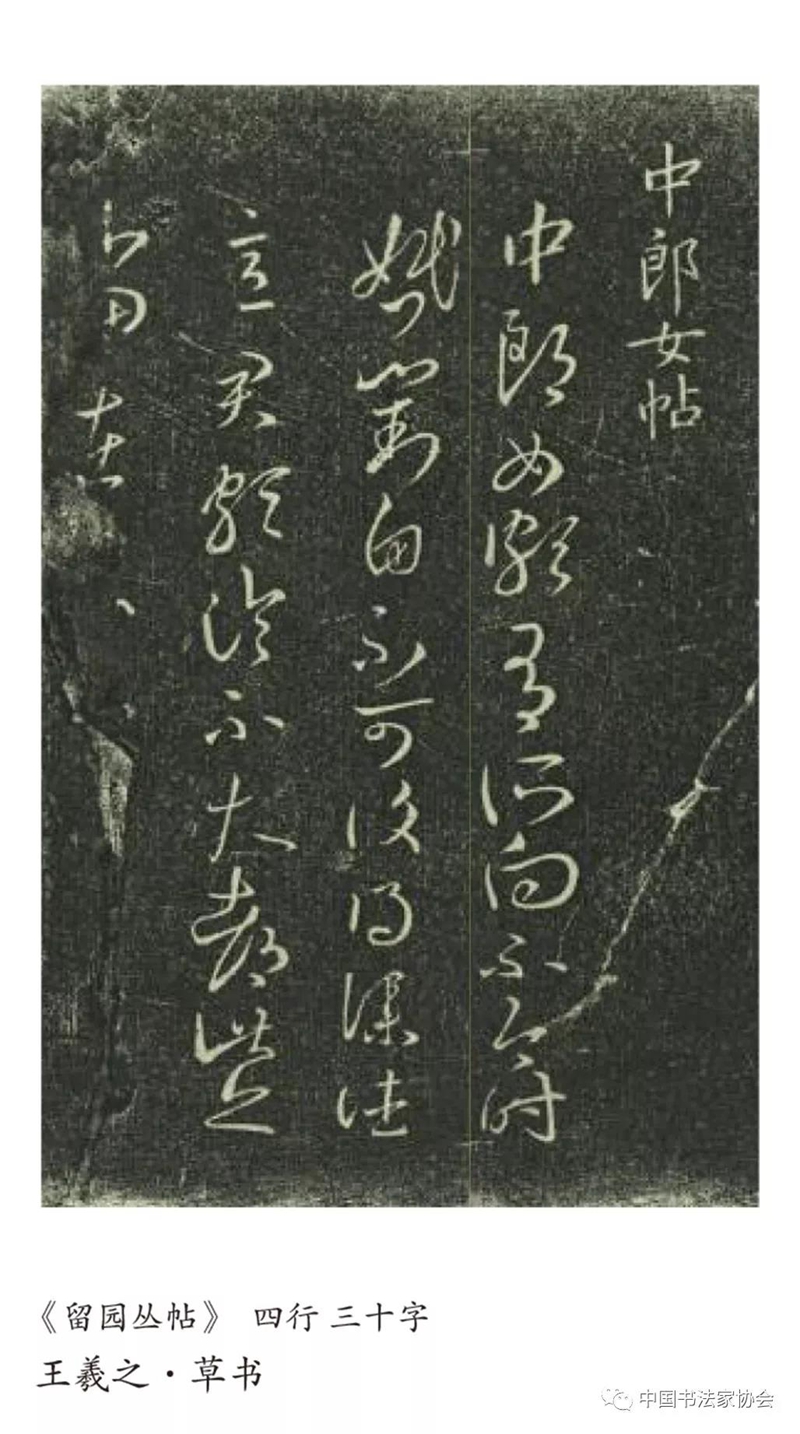 中郎女帖
中郎女頗有所向不今時
婚對自不可復得僕往
意君頗論不大都此亦
當在
《留园丛帖》 四行 三十字
王羲之·草书
中国书法家协会